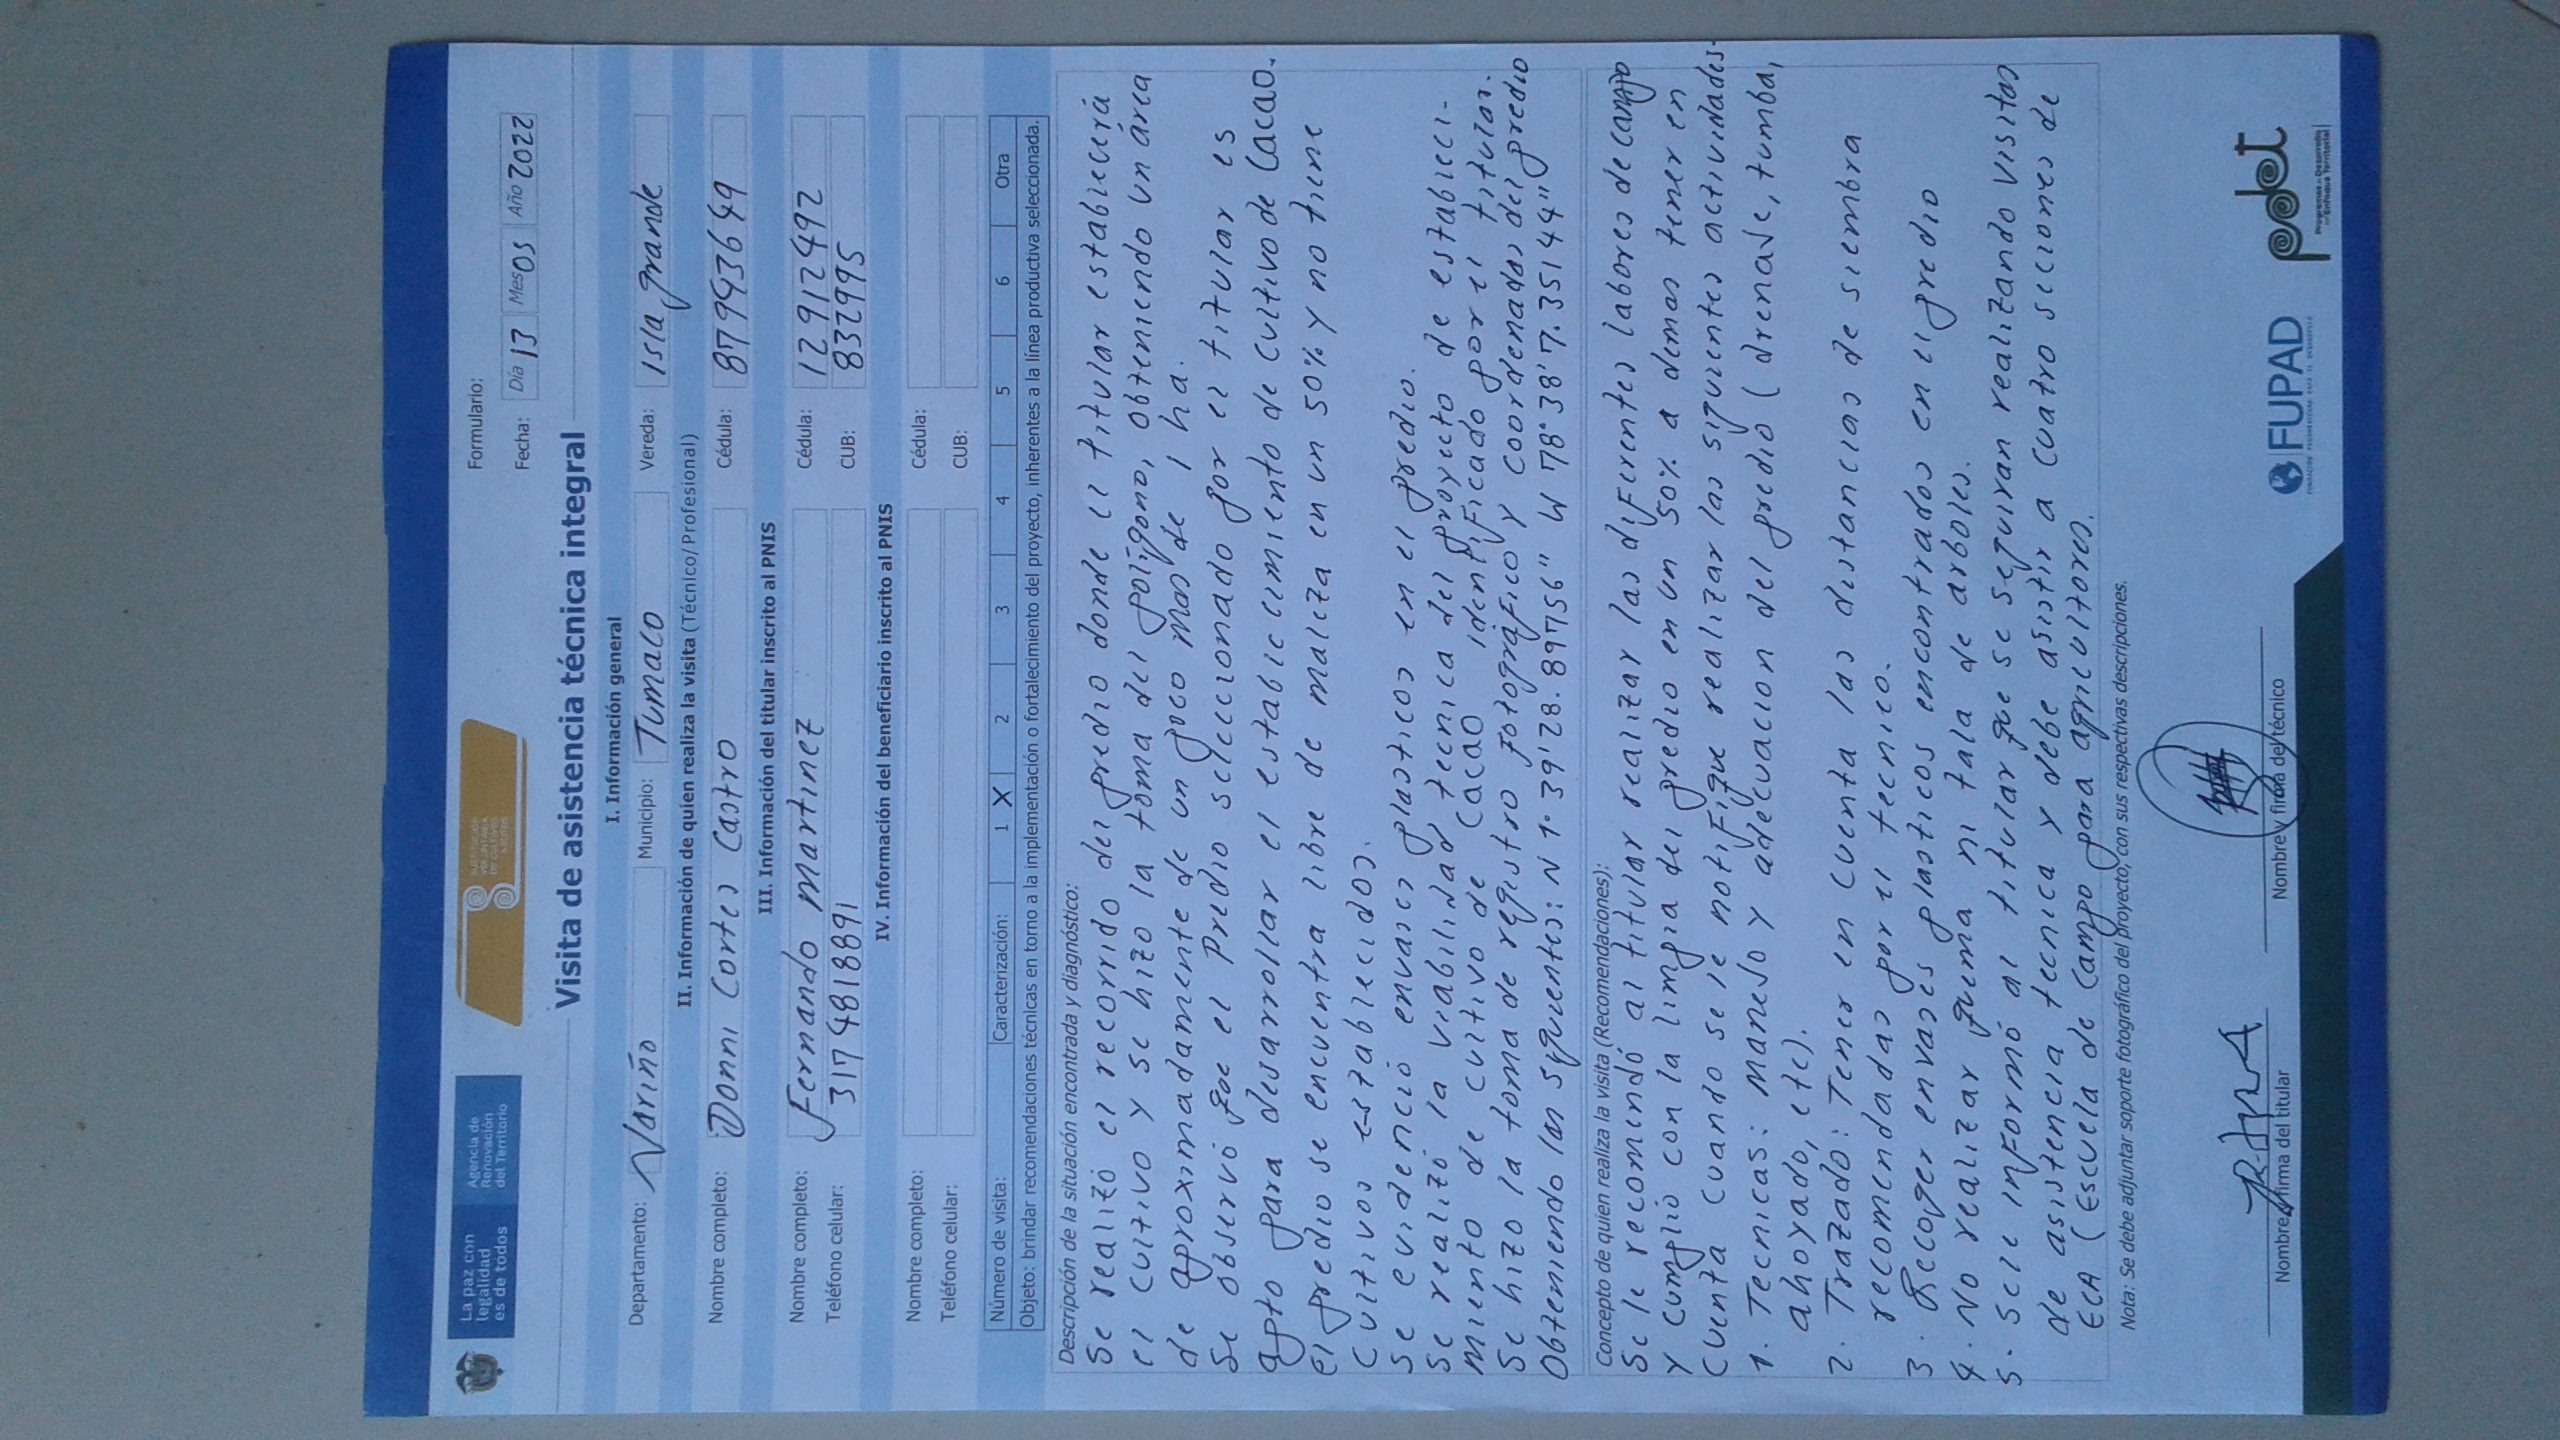 La paz con
legalidad
es de todos
Agencia de
Renovación
del Territorio
SUSTITUCIÓN
VOLUNTARIA
DE CULTIVOS
ILÍCITOS
Formulario:
Fecha: Día 13 Mes 05 Año 2022
Visita de asistencia técnica integral
I. Información general
Departamento: Nariño Municipio: Tumaco Vereda: Isla grande
II. Información de quien realiza la visita (Técnico/Profesional)
Nombre completo: Donni Cortes Castro Cédula: 87943649
III. Información del titular inscrito al PNIS
Nombre completo: Fernando Martinez Cédula: 12912492
Teléfono celular: 3174818891 CUB: 832995
IV. Información del beneficiario inscrito al PNIS
Nombre completo: Cédula:
Teléfono celular: CUB:
Número de visita: Caracterización: 1 X 2 3 4 5 6 Otra
Objeto: brindar recomendaciones técnicas en torno a la implementación o fortalecimiento del proyecto, inherentes a la línea productiva seleccionada.
Descripción de la situación encontrada y diagnóstico:
Se realizó el recorrido del predio donde el titular establecerá
el cultivo y se hizo la toma del polígono, obteniendo un área
de aproximadamente de un poco mas de 1 ha.
Se observó que el Predio seleccionado por el titular es
apto para desarrollar el establecimiento de cultivo de Cacao.
el predio se encuentra libre de maleza en un 50% y no tiene
cultivos establecidos.
Se evidenció envases plasticos en el predio.
Se realizó la viabilidad tecnica del proyecto de estableci-
miento de cultivo de Cacao identificado por el titular.
Se hizo la toma de registro fotográfico y coordenadas del predio
Obteniendo las siguentes: N 1° 39' 28.89756" W 78° 38' 7.35144"
Concepto de quien realiza la visita (Recomendaciones):
Se le recomendó al titular realizar las diferentes labores de campo
y cumplió con la limpia del predio en un 50% a demas tener en
cuenta cuando se le notifique realizar las siguientes actividades.
1. Tecnicas: Manejo y adecuacion del predio (drenaje, tumba,
ahoyado, etc).
2. Trazado: Tener en cuenta las distancias de siembra
recomendadas por el tecnico.
3. Recoger envases plasticos encontrados en el predio
4. No realizar quema ni tala de arboles.
5. Se le informó al titular que se seguiran realizando visitas
de asistencia tecnica y debe asistir a cuatro seciones de
ECA (Escuela de Campo para agricultores.
Nota: Se debe adjuntar soporte fotográfico del proyecto, con sus respectivas descripciones.
Nombre y firma del titular
Nombre y firma del técnico
FUPAD
pdet
Programas de Desarrollo
con Enfoque Territorial